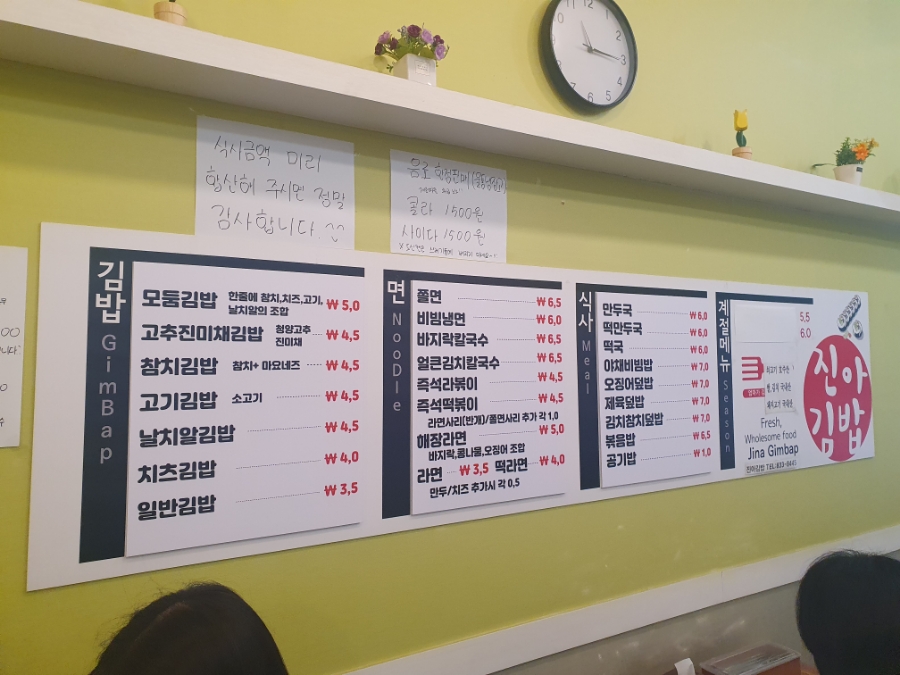 식사금액 미리
합산해 주시면 정말
감사합니다. ^^
콜라 1500원
사이다 1500원
김밥 GimBap
모둠김밥 한줄에 참치,치즈,고기, 날치알의 조합 ₩ 5,0
고추진미채김밥 청양고추 진미채 ₩ 4,5
참치김밥 참치+ 마요네즈 ₩ 4,5
고기김밥 소고기 ₩ 4,5
날치알김밥 ₩ 4,5
치츠김밥 ₩ 4,0
일반김밥 ₩ 3,5
면 NooDle
쫄면 ₩ 6,5
비빔냉면 ₩ 6,0
바지락칼국수 ₩ 6,5
얼큰김치칼국수 ₩ 6,5
즉석라볶이 ₩ 4,5
즉석떡볶이 ₩ 4,5
라면사리(반개)/쫄면사리 추가 각 1,0
해장라면 ₩ 5,0
바지락,콩나물,오징어 조합
라면 ₩ 3,5 떡라면 ₩ 4,0
만두/치즈 추가시 각 0,5
식사 Meal
만두국 ₩ 6,0
떡만두국 ₩ 6,0
떡국 ₩ 6,0
야채비빔밥 ₩ 7,0
오징어덮밥 ₩ 7,0
제육덮밥 ₩ 7,0
김치참치덮밥 ₩ 7,0
볶음밥 ₩ 6,5
공기밥 ₩ 1,0
계절메뉴 Season
5,5
6,0
Fresh,
Wholesome food
Jina Gimbap
진아김밥 TEL:
진아
김밥